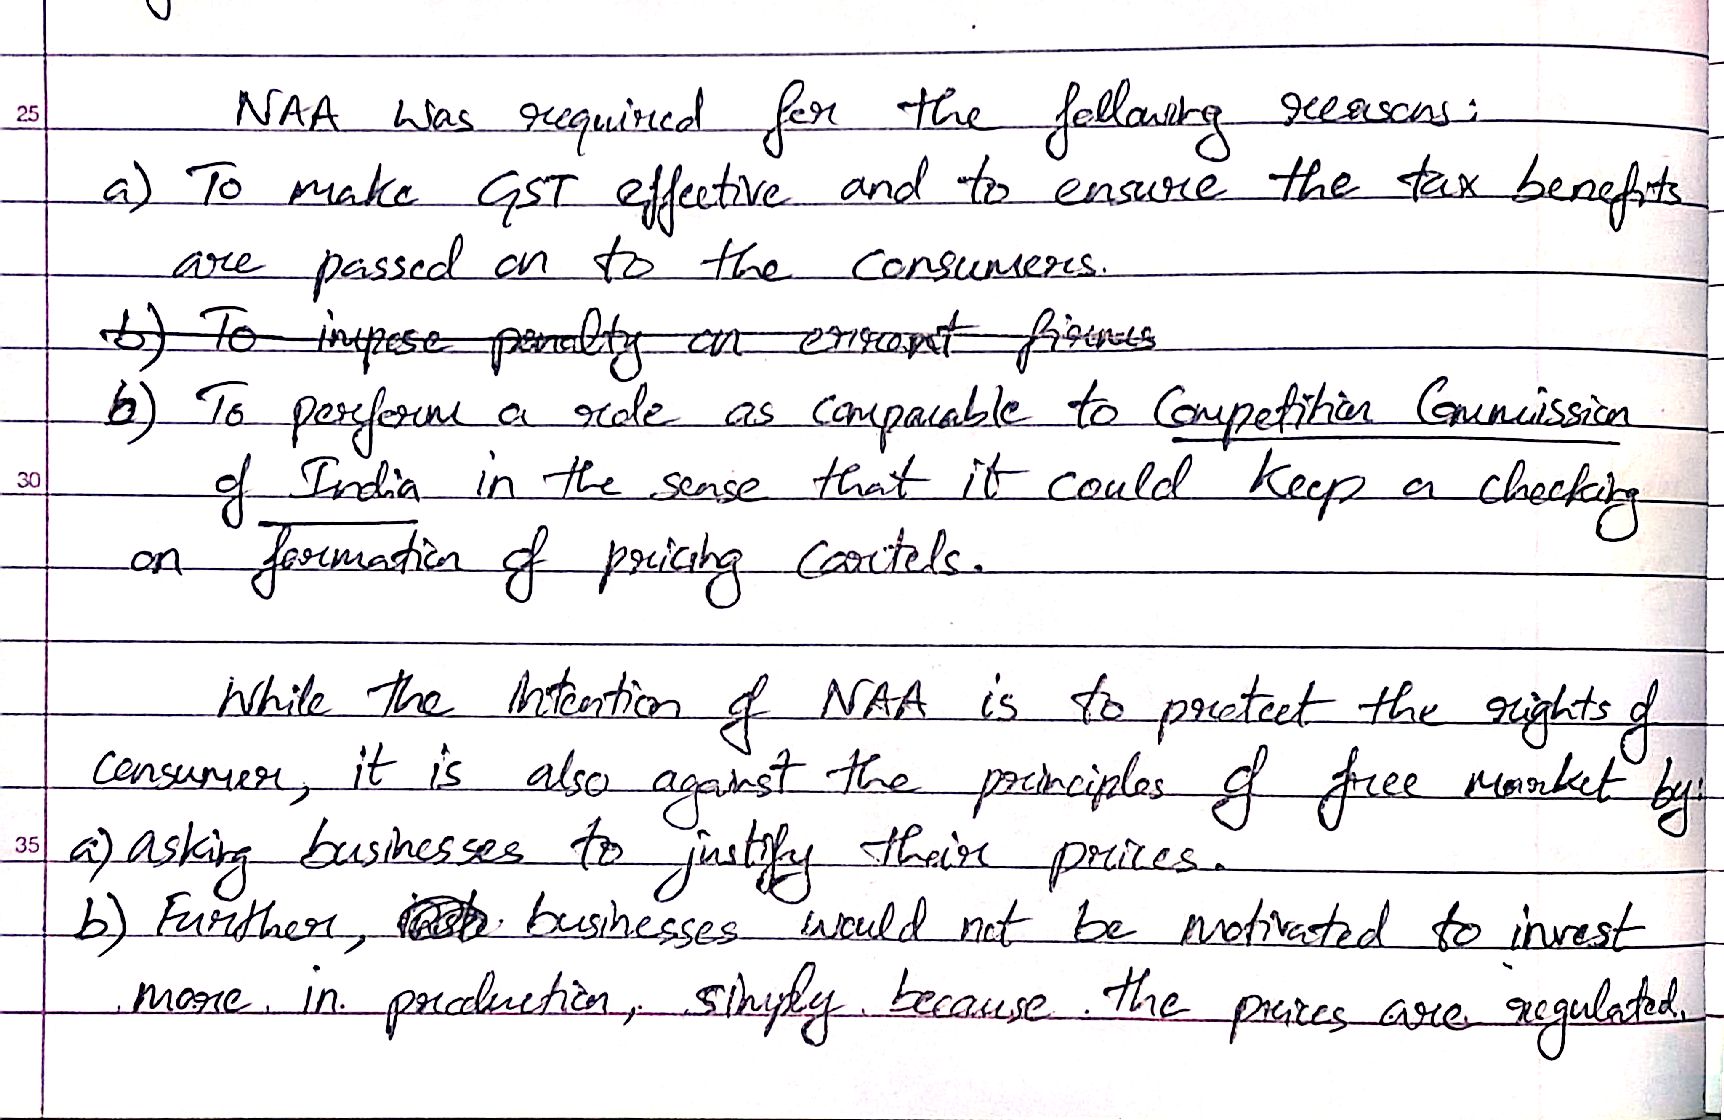 25 NAA was required for the following reasons:
a) To make GST effective and to ensure the tax benefits
are passed on to the consumers.
b) To impose penalty on errant firms
b) To perform a role as comparable to Competition Commission
30 of India in the sense that it could keep a checking
on formation of pricing cartels.
While the intention of NAA is to protect the rights of
consumer, it is also against the principles of free market by:
35 a) asking businesses to justify their prices.
b) Further, businesses would not be motivated to invest
more in production, simply because the prices are regulated.